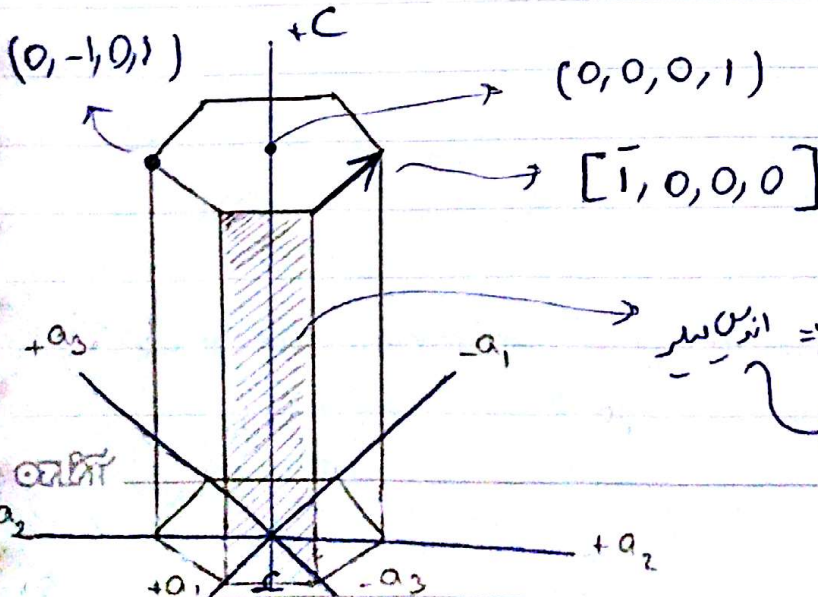 +C
(0, -1, 0, 1)
(0, 0, 0, 1)
[1̄, 0, 0, 0]
= اندیس میلر
+a3
-a1
a2
+a2
+a1
-a3